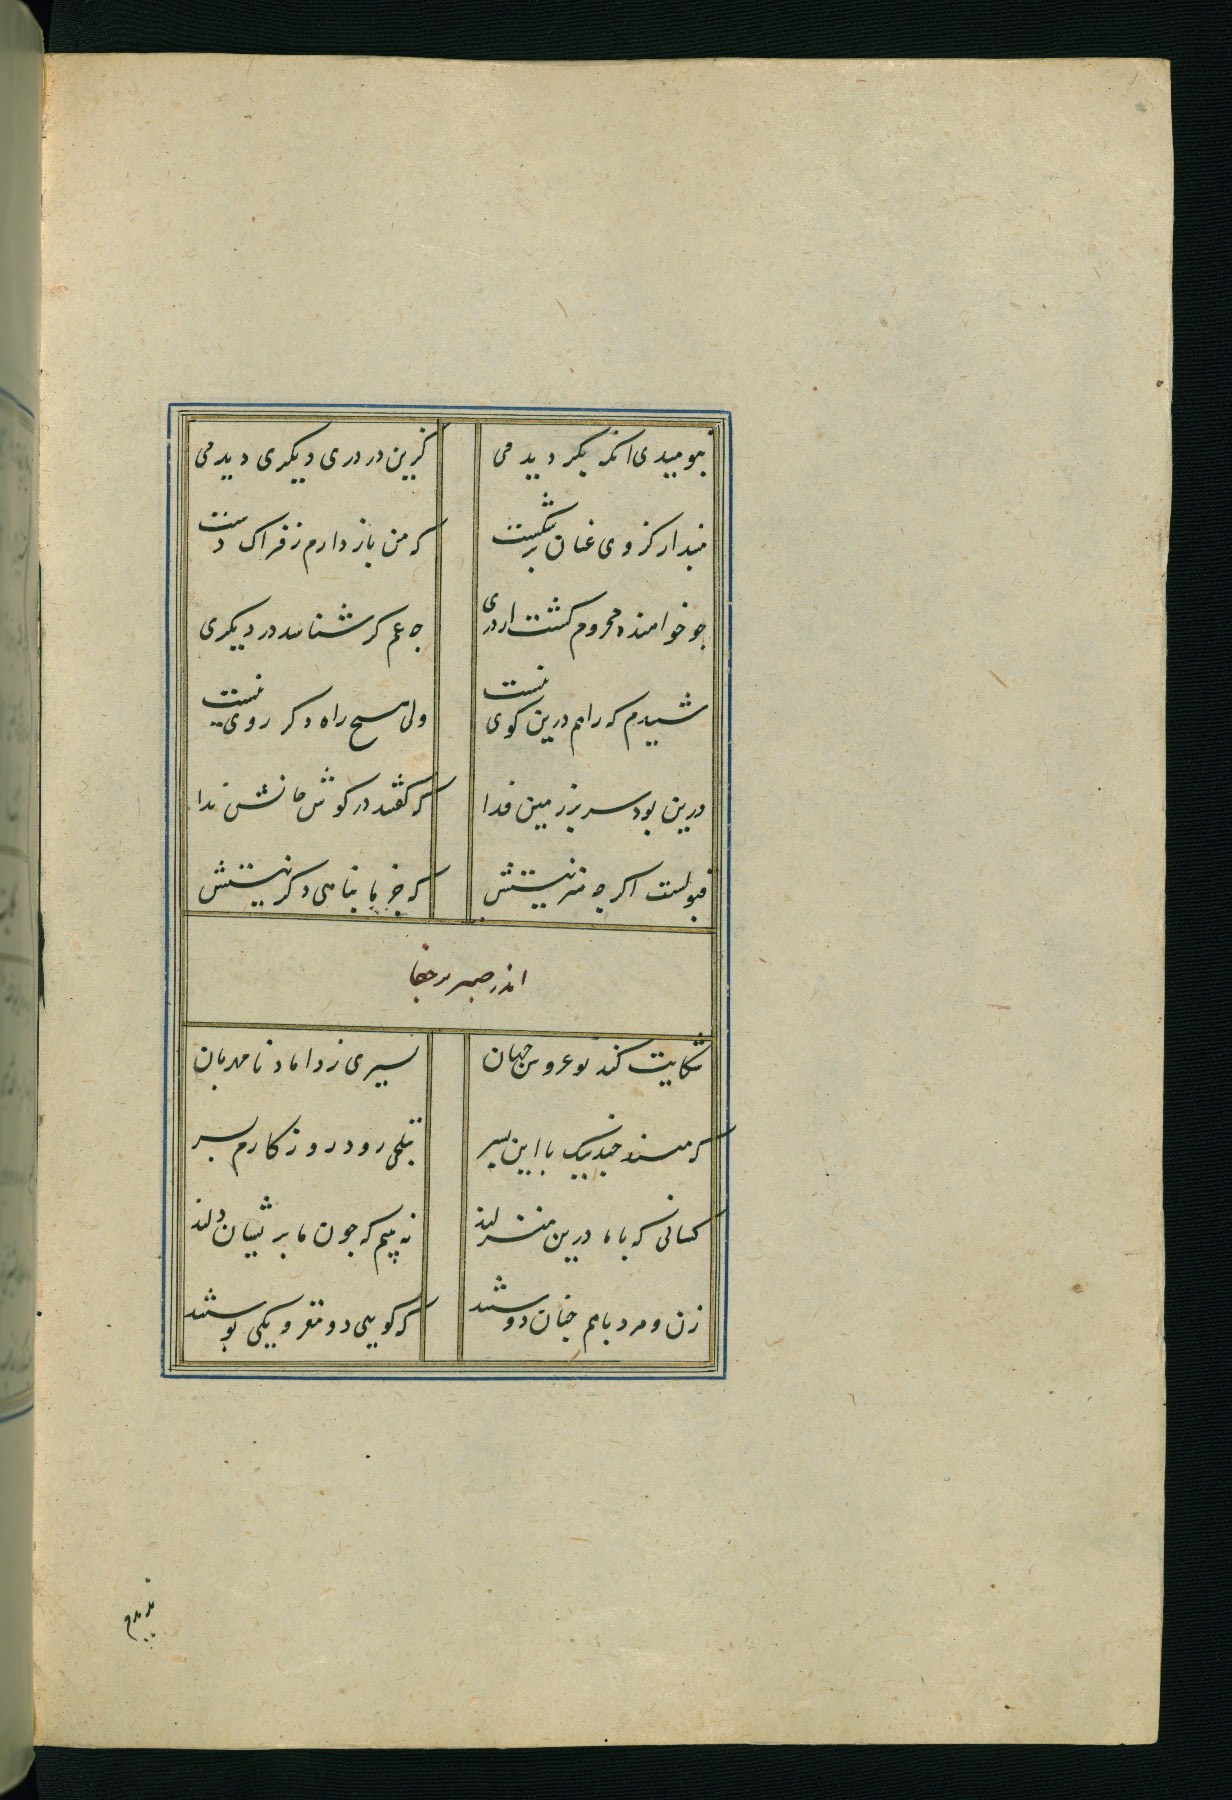 بنومیدی انکه بکر دیدمی کزین در دری دیکری دیدمی
مپندار کز وی عنان برشکست که من باز دارم ز فتراک دست
جو خواهنده محروم کشت از دری جه غم کر شناسد در دیکری
شنیدم که راهم درین کوی نیست ولی هیح راه دکر روی نیست
درین بود سر بر زمین فدا که کفتند در کوش جانش ندا
قبولست اکر جه هنر نیستش که جز ما پناهی دکر نیستش
اندر صبر بر جفا
شکایت کند نو عروس جهان بپیری ز داماد نامهربان
که مپسند جندینک با این پسر بتلخی رود روزکارم بسر
کسانی که با ما درین منزلند نه بینم که جون ما پریشان دلند
زن و مرد باهم جنان دوستند که کویی دو مغز و یکی پوستند
ندیدم